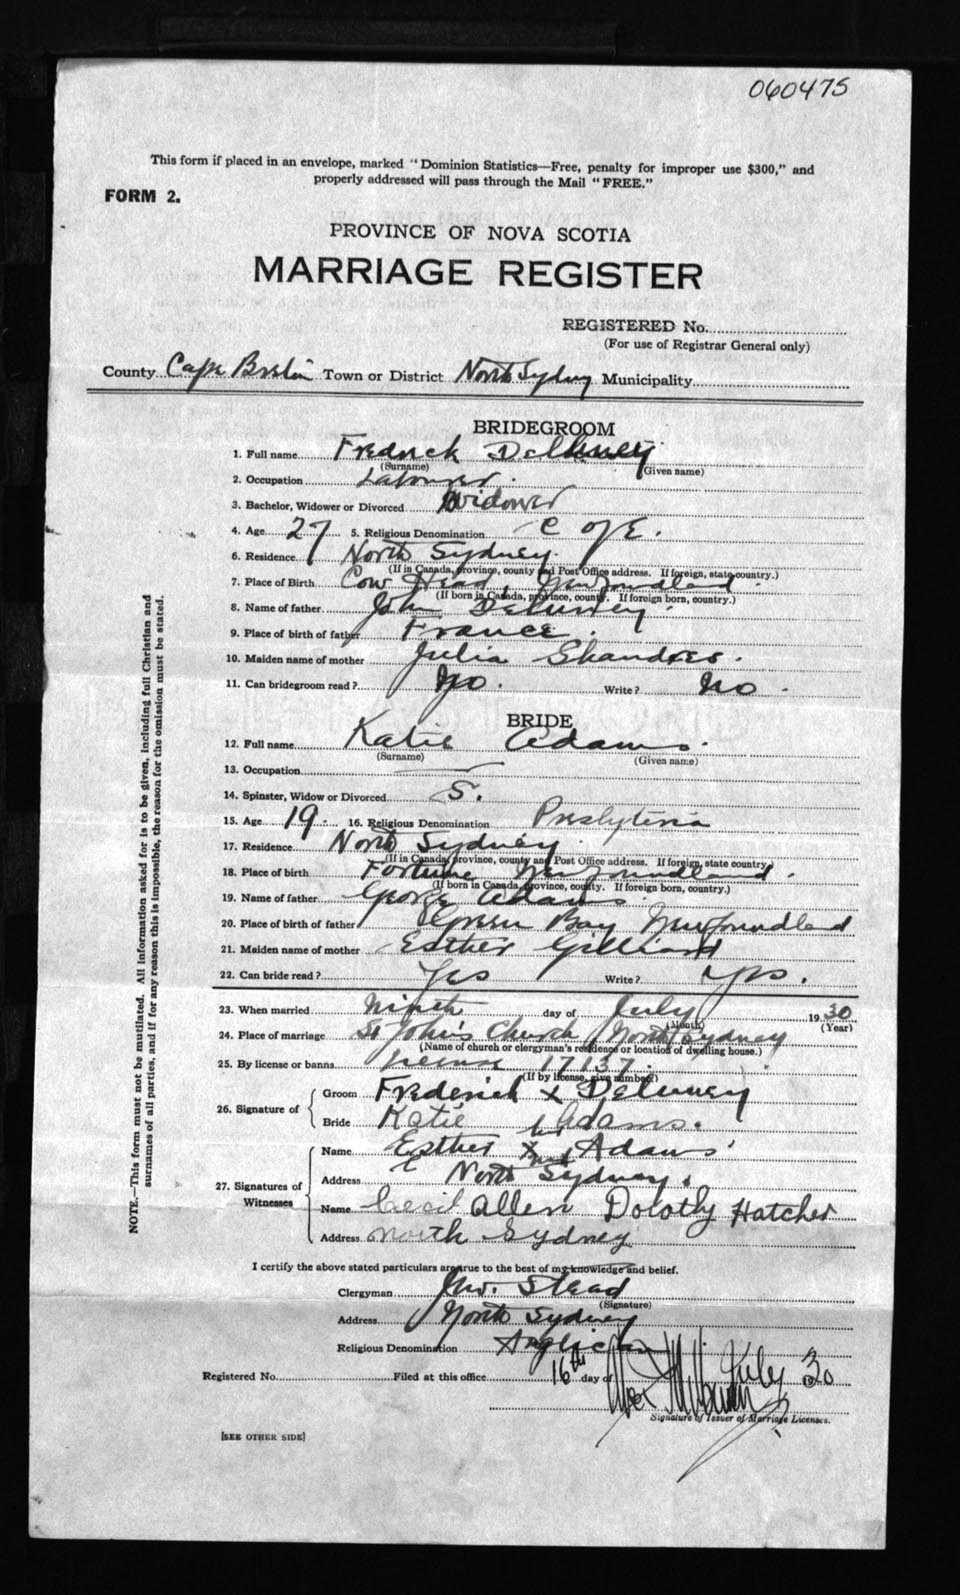 060475
This form if placed in an envelope, marked "Dominion Statistics—Free, penalty for improper use $300," and
properly addressed will pass through the Mail "FREE."
FORM 2.
PROVINCE OF NOVA SCOTIA
MARRIAGE REGISTER
REGISTERED No.
(For use of Registrar General only)
County Cape Breton Town or District North Sydney Municipality
BRIDEGROOM
1. Full name Fredrick
(Surname) (Given name)
2. Occupation Labourer.
3. Bachelor, Widower or Divorced Widower
4. Age 27 5. Religious Denomination C of E.
6. Residence North Sydney.
(If in Canada, province, county and Post Office address. If foreign, state country.)
7. Place of Birth Cow Head, Newfoundland.
(If born in Canada, province, county. If foreign born, country.)
8. Name of father John
9. Place of birth of father France.
10. Maiden name of mother Julia
11. Can bridegroom read? No. Write? No.
BRIDE
12. Full name Katie Adams.
(Surname) (Given name)
13. Occupation —
14. Spinster, Widow or Divorced S.
15. Age 19. 16. Religious Denomination Presbyteria
17. Residence North Sydney
(If in Canada, province, county and Post Office address. If foreign, state country)
18. Place of birth Fortune Newfoundland.
(If born in Canada, province, county. If foreign born, country.)
19. Name of father George Adams.
20. Place of birth of father Green Bay Newfoundland
21. Maiden name of mother Esther
22. Can bride read? Yes Write? Yes.
23. When married Ninth day of July 1930
(Month) (Year)
24. Place of marriage St John's Church North Sydney
(Name of church or clergyman's residence or location of dwelling house.)
25. By license or banns License 17137.
(If by license, give number)
26. Signature of
Groom Frederick X Deluney
Bride Katie Adams.
27. Signatures of Witnesses
Name Esther her X mark Adams
Address North Sydney.
Name Cecil Allen Dorothy Hatcher
Address North Sydney
I certify the above stated particulars are true to the best of my knowledge and belief.
Clergyman Stead
(Signature)
Address North Sydney
Religious Denomination Anglican
Registered No. Filed at this office 16th day of July 1930
Signature of Issuer of Marriage Licenses.
[SEE OTHER SIDE]
NOTE.—This form must not be mutilated. All information asked for is to be given, including full Christian and
surnames of all parties, and if for any reason this is impossible, the reason for the omission must be stated.